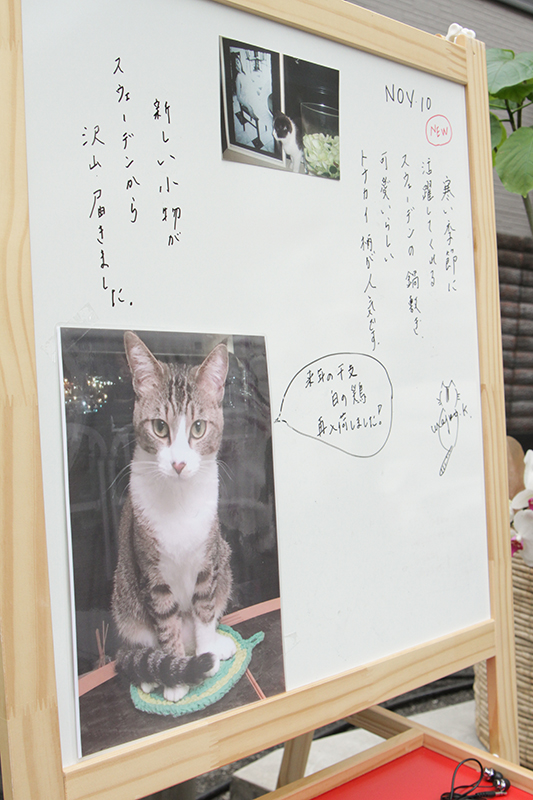 NOV.10
NEW
寒い季節に
活躍してくれる
スウェーデンの鍋敷き。
可愛いらしい
トナカイ柄が人気です。
新しい小物が
スウェーデンから
沢山届きました。
来年の干支
白の鶏
再入荷しました!